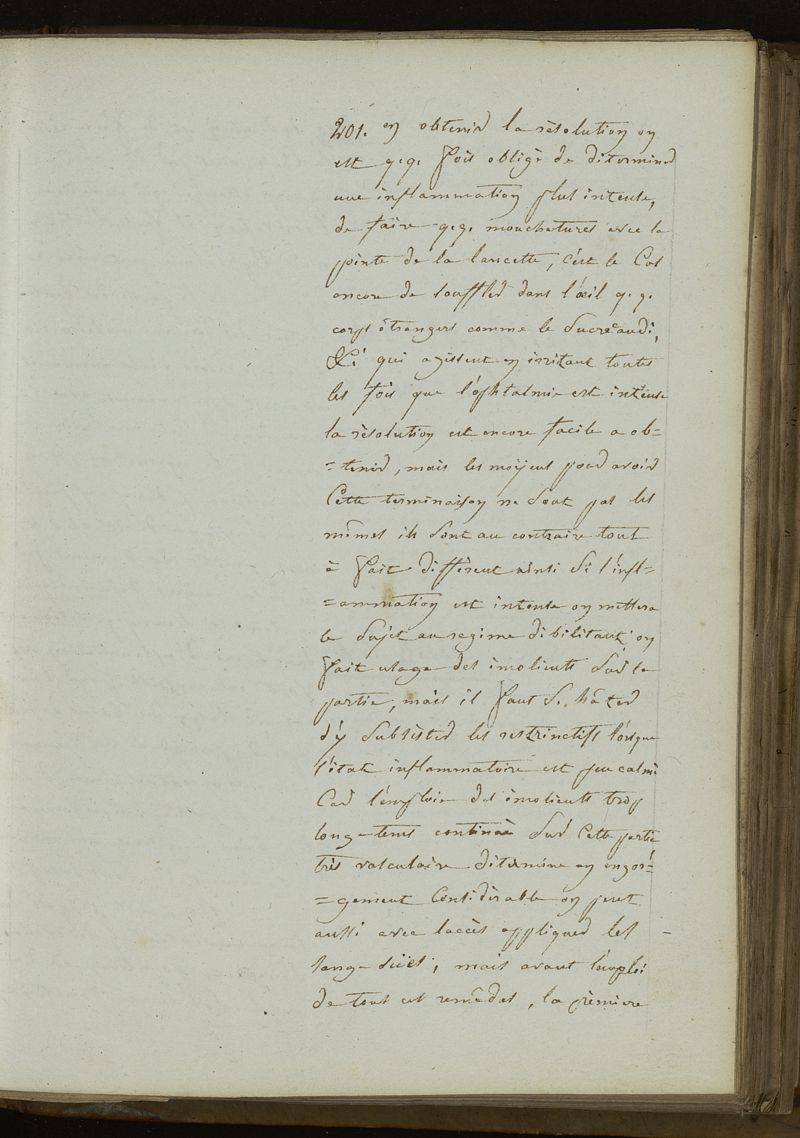 201. en obtenir la résolution on
est q.q. fois obligé de déterminer
une inflammation plus intense,
de faire q.q. mouchetures avec la
pointe de la lancette, c'est le Cas
encore de souffler dans l'œil q. q.
corps étrangers comme le Sucre candi,
&c. qui agissent en irritant toutes
les fois que l'ophtalmie est intense
la résolution est encore facile a ob-
=tenir, mais les moÿens pour avoir
Cette terminaison ne sont pas les
mêmes ils sont au contraire tout
à fait différent ainsi Si l'infl-
=ammation est intense on mettera
le Sujet au regime débilitant on
fait usage des émolients Sur la
partie, mais il faut Se hâter
d'ÿ Substster les restrinctifs lorsque
l'état inflammatoire est peu calmé
Car l'emploie des émolients trop
long-tems continué Sur Cette partie
très vasculaire détermine en engor-
=gement Considérable on peut
aussi avec laccès appliquer les
sang-süës, mais avant l'emploi
de tout ces remèdes, la première